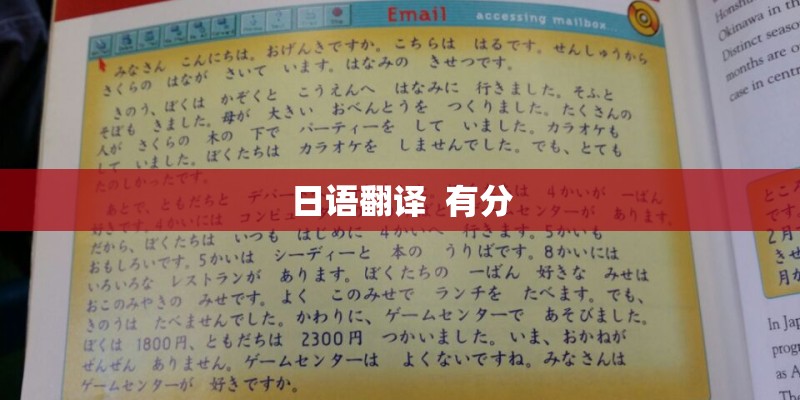 Email accessing mailbox...
みなさん こんにちは。おげんきですか。こちらは はるです。せんしゅうから
さくらの はなが さいて います。はなみの きせつです。
きのう、ぼくは かぞくと こうえんへ はなみに 行きました。そふと
そぼも きました。母が 大きい おべんとうを つくりました。たくさんの
人が さくらの 木の 下で パーティーを して いました。カラオケも
して いました。ぼくたちは カラオケを しませんでした。でも、とても
たのしかったです。
あとで、ともだちと デパー は 4かいが 一ばん
好きです。4かいには コンピュ ームセンターが あります。
日语翻译 有分
だから、ぼくたちは いつも はじめに 4かいへ 行きます。5かいも
おもしろいです。5かいは シーディーと 本の うりばです。8かいには
いろいろな レストランが あります。ぼくたちの 一ばん 好きな みせは
おこのみやきの みせです。よく このみせで ランチを たべます。でも、
きのうは たべませんでした。かわりに、ゲームセンターで あそびました。
ぼくは 1800円、ともだちは 2300円 つかいました。いま、おかねが
ぜんぜん ありません。ゲームセンターは よくないですね。みなさんは
ゲームセンターが 好きですか。
Honshu
Okinawa in th
Distinct seaso
months are o
case in centr
ところ
です。
2月
きせ
月か
In Jap
progr
as A
The